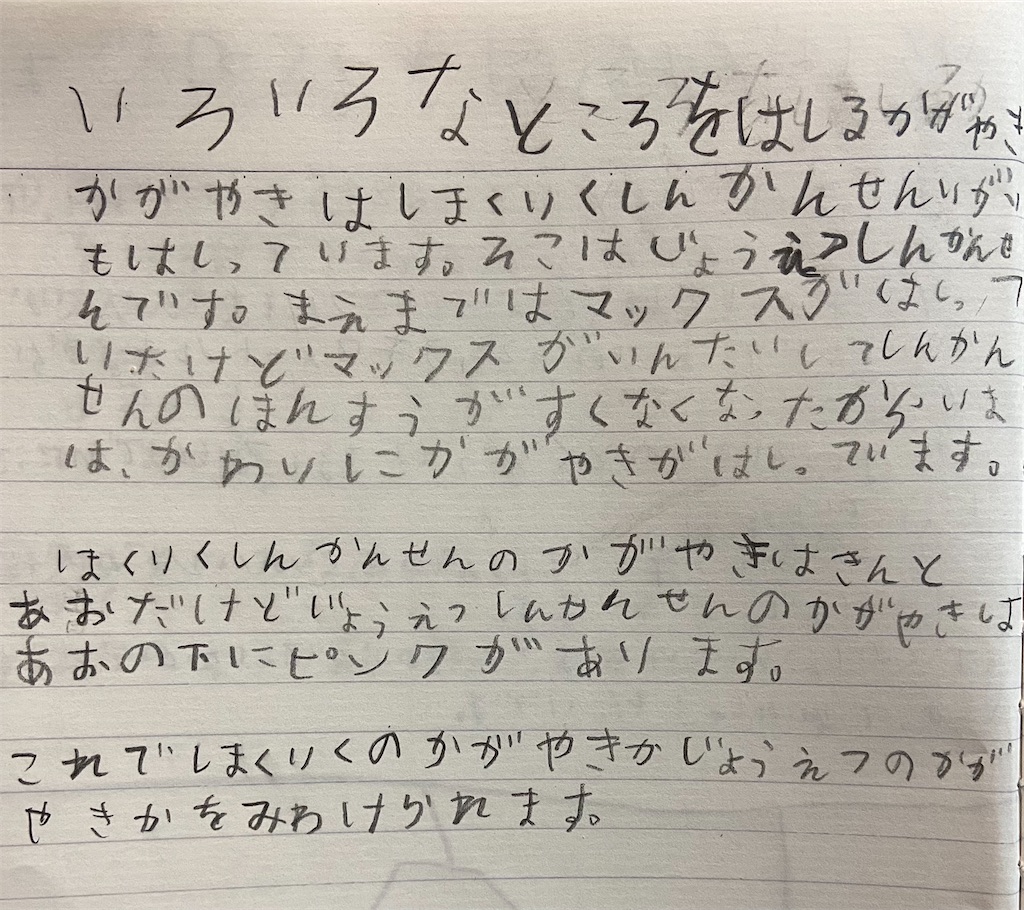 いろいろなところをはしるかがやき
かがやきはしまくりくしんかんせんいがい
もはしっています。そこはじょうえつしんかんせ
んです。まえまではマックスがはしって
いたけどマックスがいんたいしてしんかん
せんのほんすうがすくなくなったからいま
は、かわりにかがやきがはしっています。
ほくりくしんかんせんのかがやきはきんと
あおだけどじょうえつしんかんせんのかがやきは
あおの下にピンクがあります。
これでしまくりくのかがやきかじょうえつのかが
やきかをみわけられます。